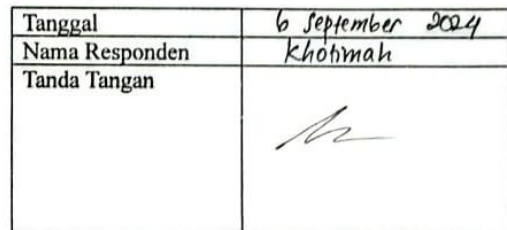 Tanggal 6 September 2024
Nama Responden Khotimah
Tanda Tangan